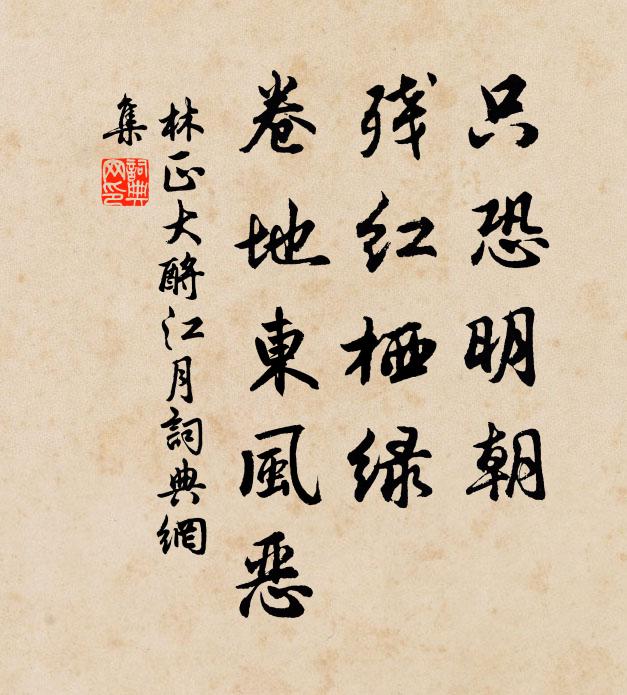 只恐明朝
残红栖绿
卷地東風恶
林正大酹江月詞典網
集
詞典
网印